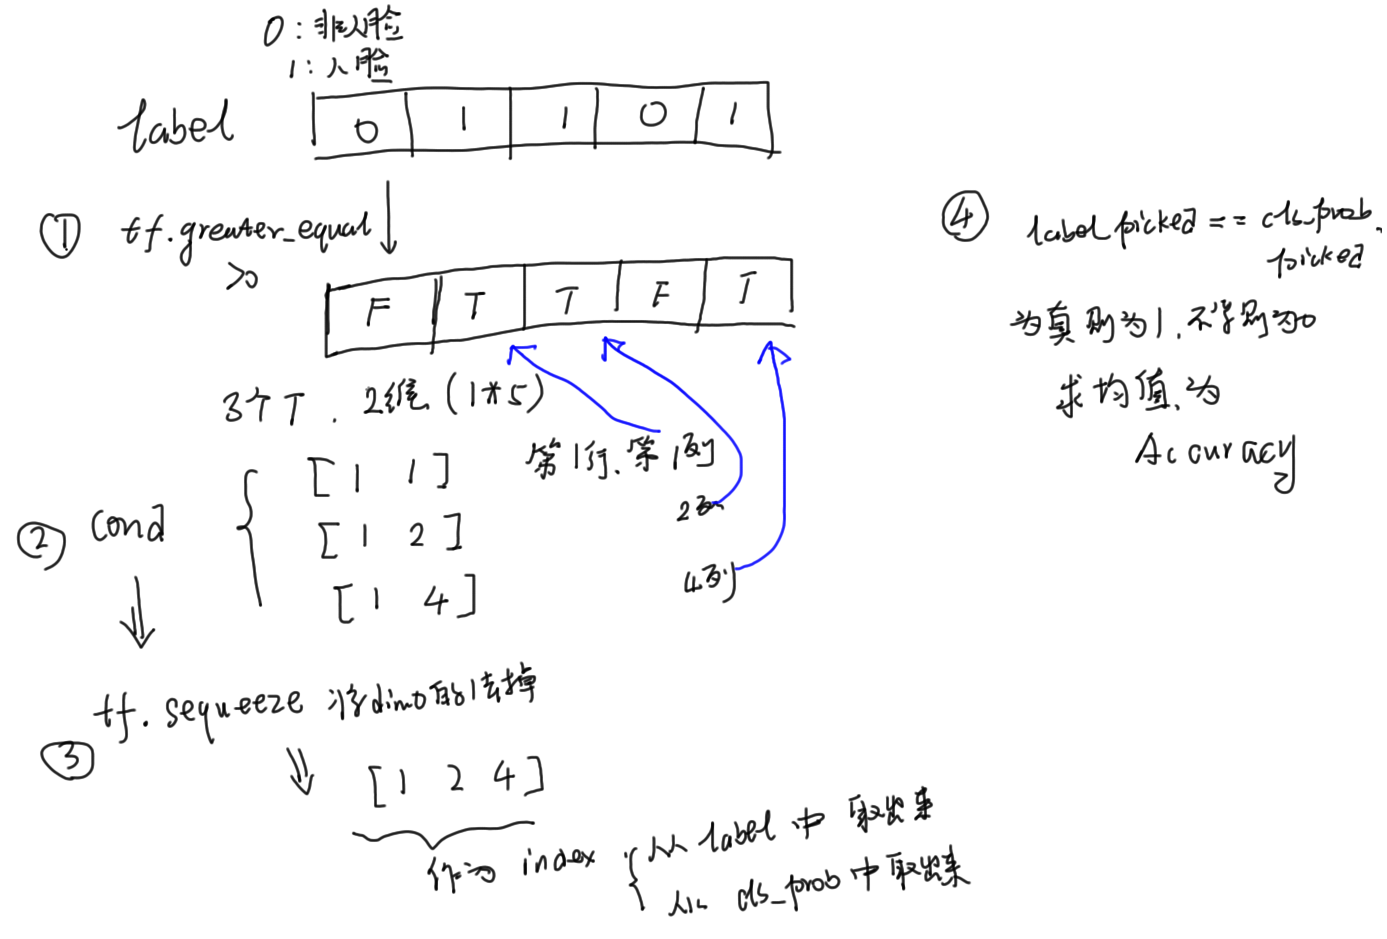 0：非人脸
1：人脸
label 0 1 1 0 1
① tf.greater_equal
>0
F T T F T
3个T. 2维 (1*5)
第1行、第1列
2列
4列
② cond
[1 1]
[1 2]
[1 4]
③ tf.sequeeze 将dim0的1去掉
[1 2 4]
作为 index
从 label 中 取出来
从 cls_prob 中取出来
④ label_picked == cls_prob_
picked
为真则为1, 不等则为0
求均值, 为
Accuracy